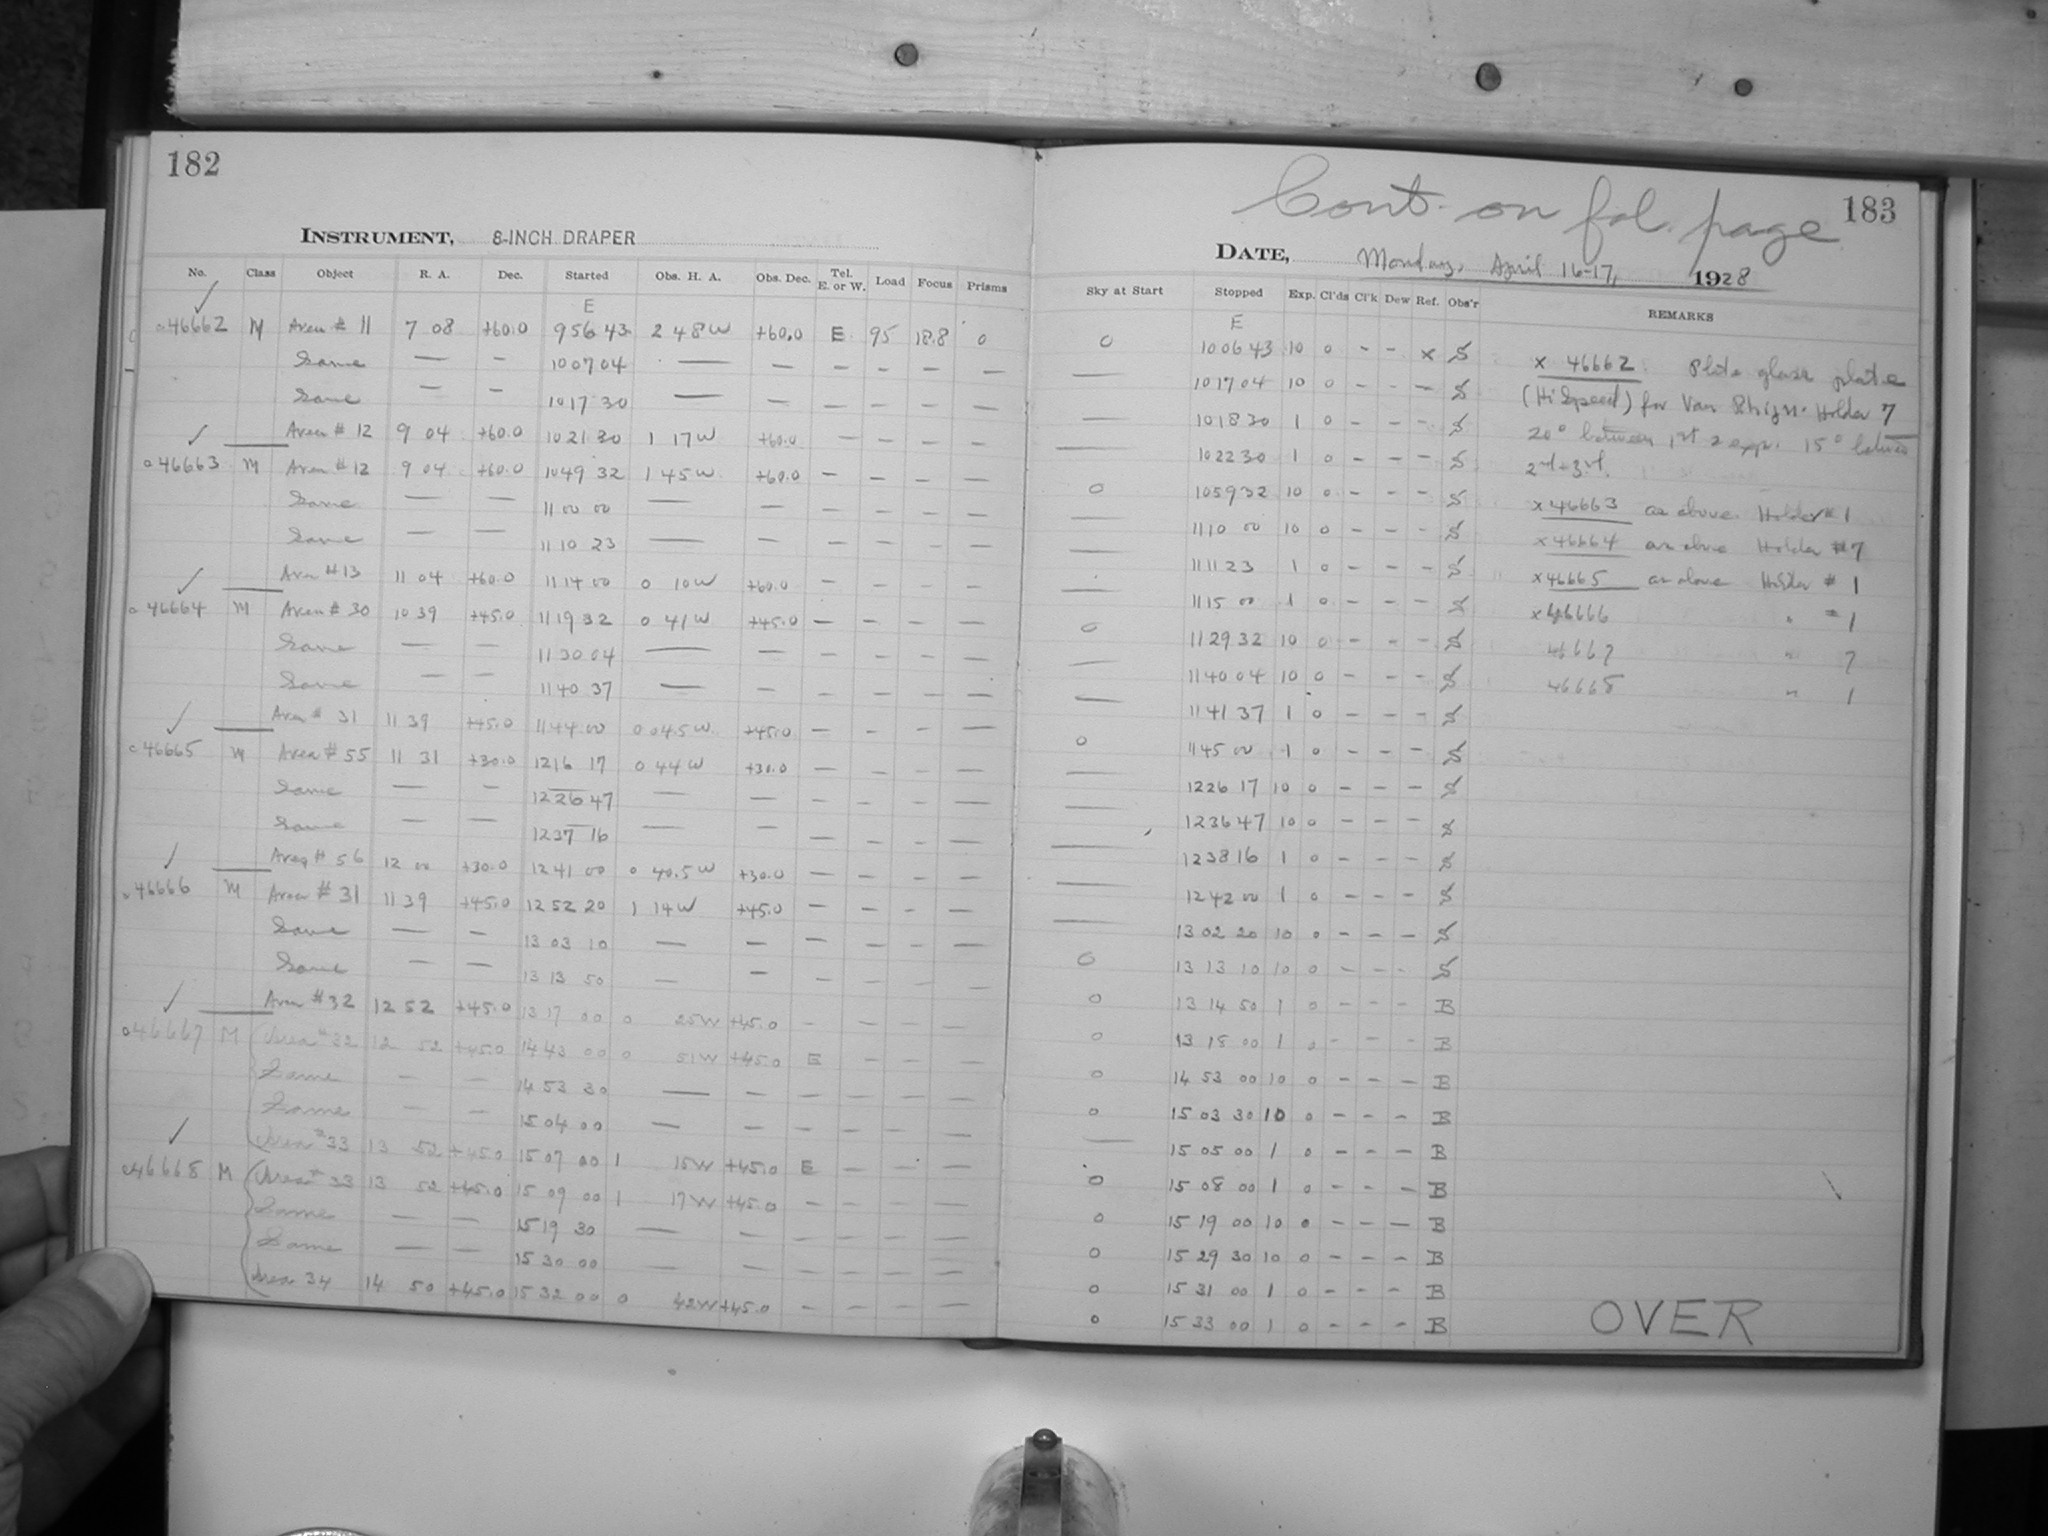 182
INSTRUMENT, 8-INCH DRAPER
No. Class Object R. A. Dec. Started Obs. H. A. Obs. Dec. Tel. E. or W. Load Focus Prisms
E
46662 M Area # 11 7 08 +60.0 9 56 43 2 48 W +60.0 E 95 18.8 0
Same — — 10 07 04 — — — — — —
Same — — 10 17 30 — — — — — —
Area # 12 9 04 +60.0 10 21 30 1 17 W +60.0 — — — —
46663 M Area # 12 9 04 +60.0 10 49 32 1 45 W +60.0 — — — —
Same — — 11 00 00 — — — — — —
Same — — 11 10 23 — — — — — —
Area # 13 11 04 +60.0 11 14 00 0 10 W +60.0 — — — —
46664 M Area # 30 10 39 +45.0 11 19 32 0 41 W +45.0 — — — —
Same — — 11 30 04 — — — — — —
Same — — 11 40 37 — — — — — —
Area # 31 11 39 +45.0 11 44 00 0 04.5 W +45.0 — — — —
46665 M Area # 55 11 31 +30.0 12 16 17 0 44 W +30.0 — — — —
Same — — 12 26 47 — — — — — —
Same — — 12 37 16 — — — — — —
Area # 56 12 00 +30.0 12 41 00 0 40.5 W +30.0 — — — —
46666 M Area # 31 11 39 +45.0 12 52 20 1 14 W +45.0 — — — —
Same — — 13 03 10 — — — — — —
Same — — 13 13 50 — — — — — —
Area # 32 12 52 +45.0 13 17 00 0 25 W +45.0 — — — —
46667 M Area # 32 12 52 +45.0 14 43 00 0 51 W +45.0 E — — —
Same — — 14 53 30 — — — — — —
Same — — 15 04 00 — — — — — —
Area # 33 13 52 +45.0 15 07 00 1 15 W +45.0 E — — —
46668 M Area # 33 13 52 +45.0 15 09 00 1 17 W +45.0 — — — —
Same — — 15 19 30 — — — — — —
Same — — 15 30 00 — — — — — —
Area 34 14 50 +45.0 15 32 00 0 42 W +45.0 — — — —
Cont. on fol. page 183
DATE, Monday, April 16-17, 1928
Sky at Start Stopped Exp. Cl'ds Cl'k Dew Ref. Obs'r REMARKS
E
0 10 06 43 10 0 - - x S
— 10 17 04 10 0 - - - S
— 10 18 30 1 0 - - - S
— 10 22 30 1 0 - - - S
0 10 59 32 10 0 - - - S
— 11 10 00 10 0 - - - S
— 11 11 23 1 0 - - - S
— 11 15 00 1 0 - - - S
0 11 29 32 10 0 - - - S
— 11 40 04 10 0 - - - S
— 11 41 37 1 0 - - - S
0 11 45 00 1 0 - - - S
— 12 26 17 10 0 - - - S
— 12 36 47 10 0 - - - S
— 12 38 16 1 0 - - - S
— 12 42 00 1 0 - - - S
— 13 02 20 10 0 - - - S
0 13 13 10 10 0 - - - S
0 13 14 50 1 0 - - - B
0 13 18 00 1 0 - - - B
0 14 53 00 10 0 - - - B
0 15 03 30 10 0 - - - B
— 15 05 00 1 0 - - - B
0 15 08 00 1 0 - - - B
0 15 19 00 10 0 - - - B
0 15 29 30 10 0 - - - B
0 15 31 00 1 0 - - - B
0 15 33 00 1 0 - - - B
x 46662: Plate glass plate
(Hi Speed) for Van Rhijn. Holder 7
20° between 1st 2 exp. 15° between
2nd + 3rd.
x 46663 as above. Holder # 1
x 46664 as above Holder # 7
x 46665 as above Holder # 1
x 46666 " = 1
46667 " 7
46668 " 1
OVER